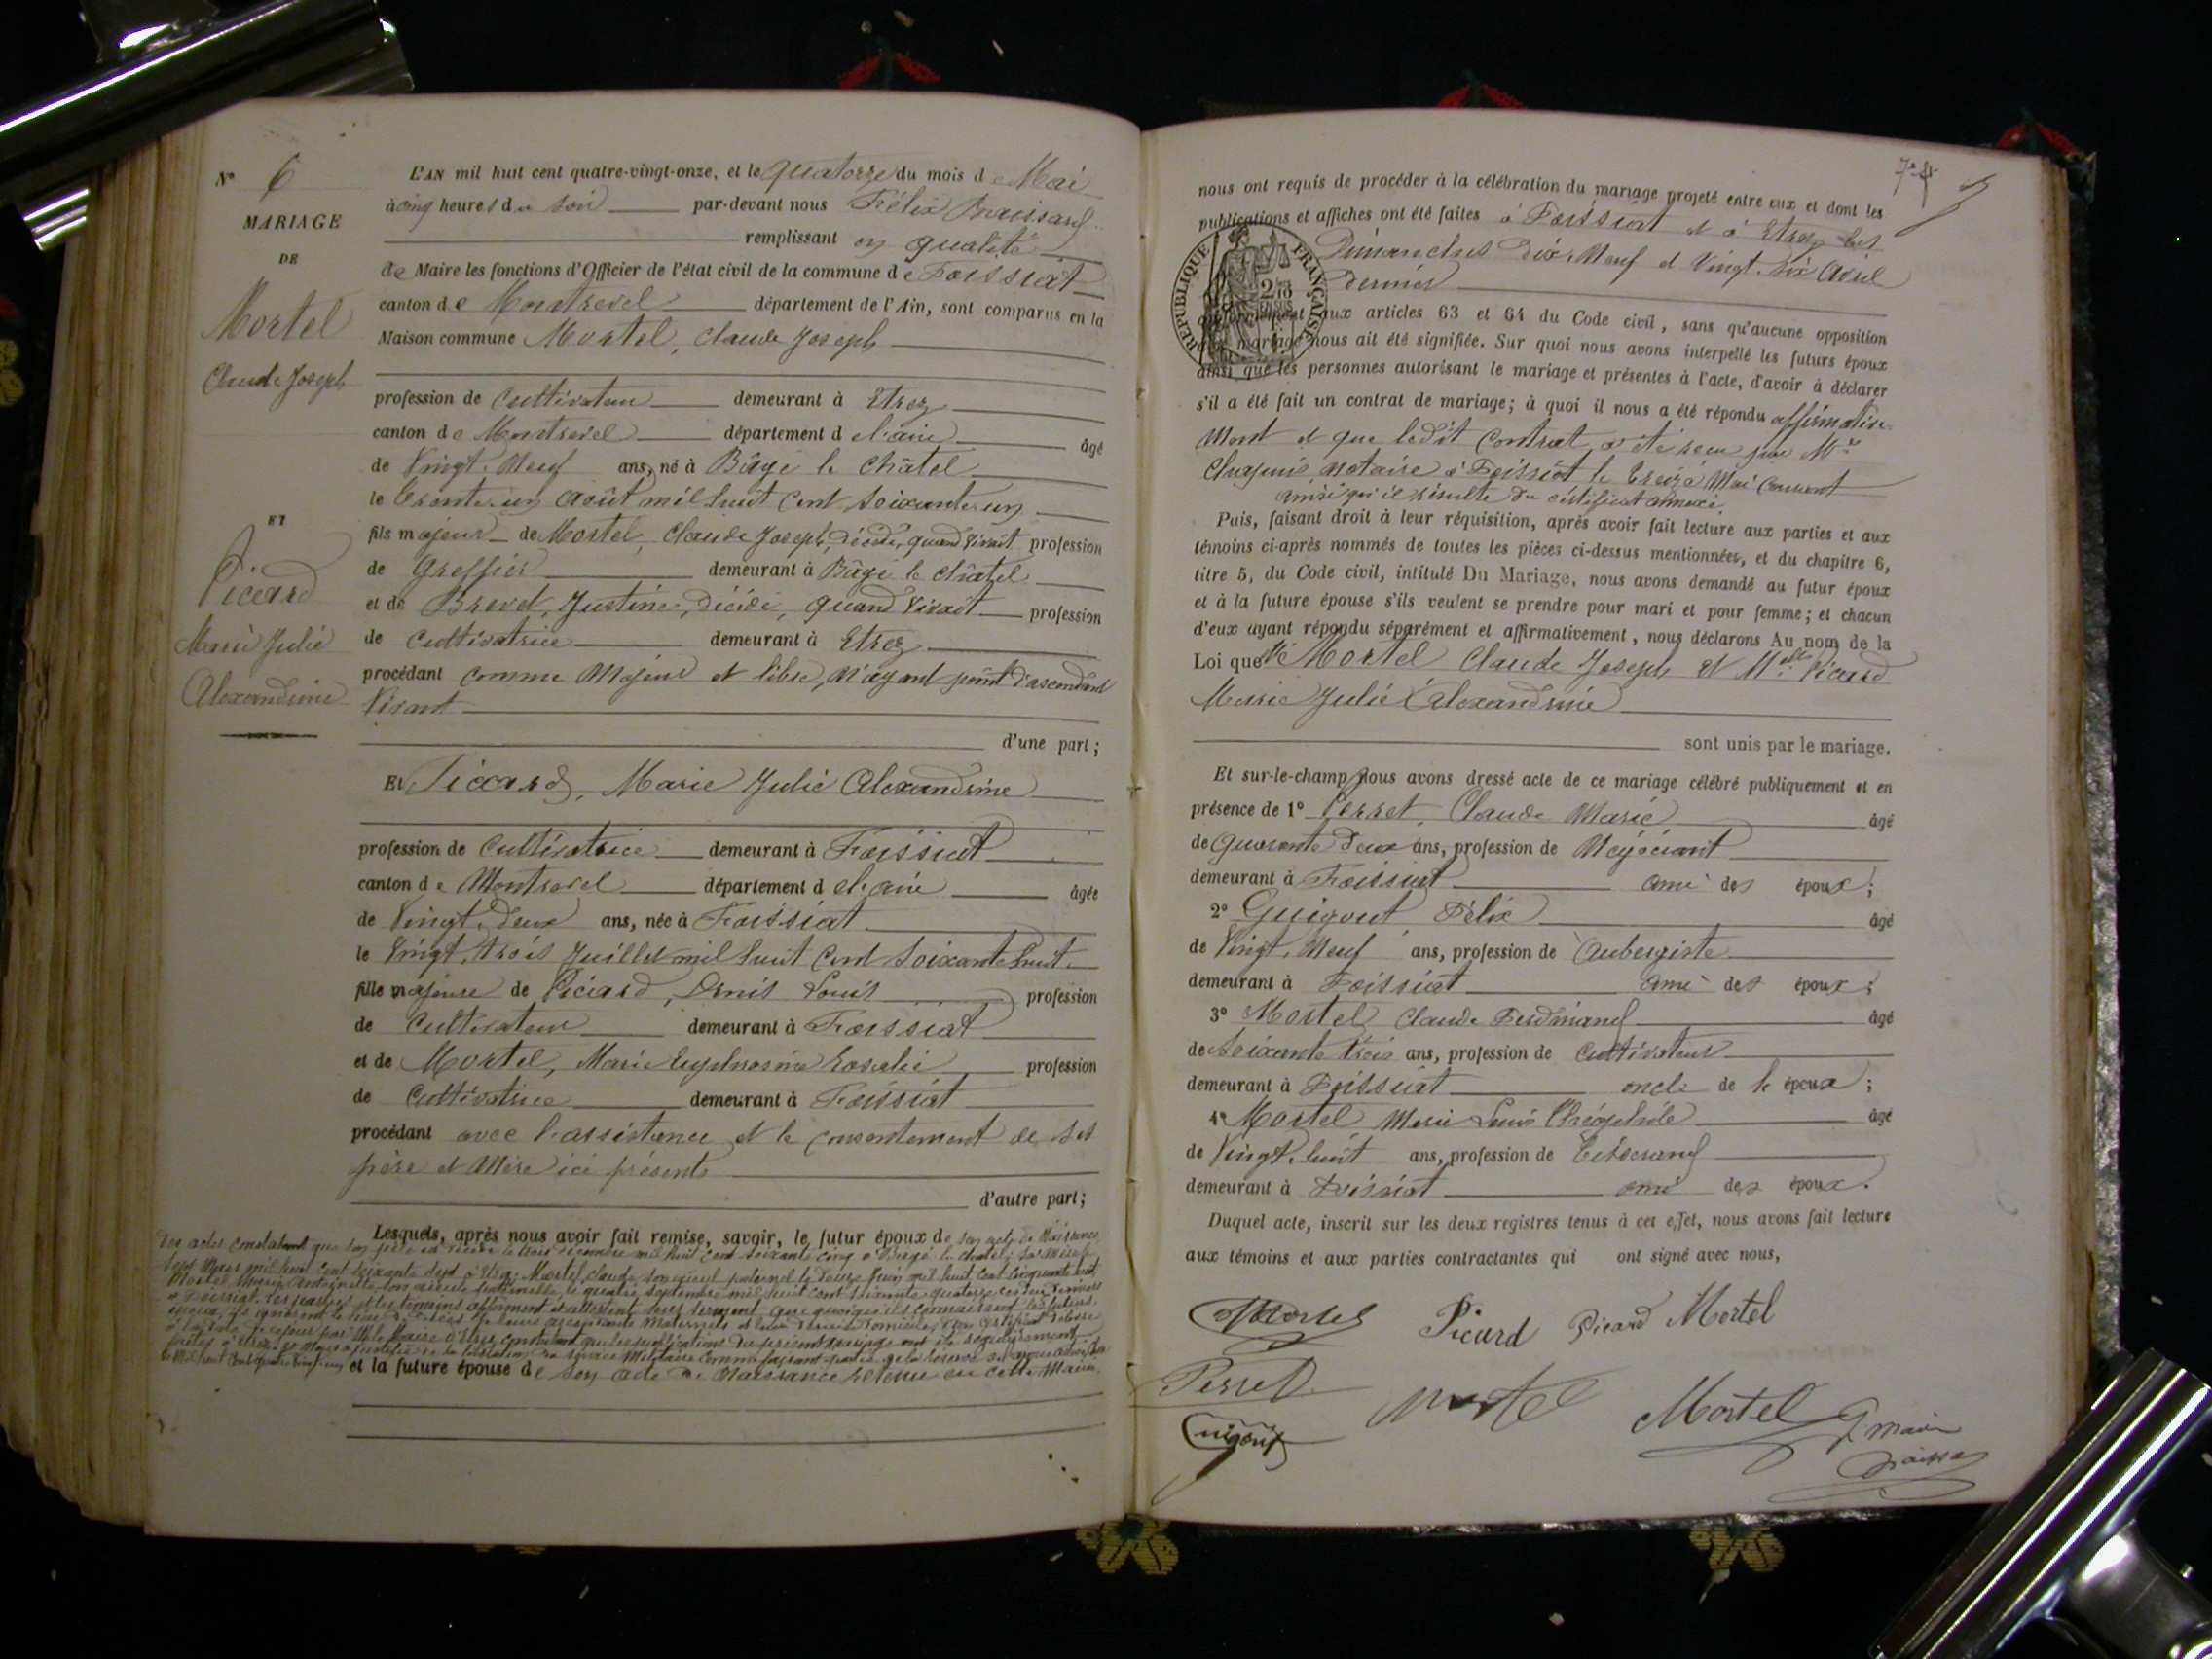 N° 6
MARIAGE
DE
Mortel
Claude Joseph
ET
Picard
Marie Julie
Alexandrine
L'AN mil huit cent quatre-vingt-onze, et le quatorze du mois de Mai
à cinq heures du soir par-devant nous Félix
remplissant en qualité
de Maire les fonctions d'Officier de l'état civil de la commune de Foissiat
canton de Montrevel département de l'Ain, sont comparus en la
Maison commune Mortel, Claude Joseph
profession de Cultivateur demeurant à Etrez
canton de Montrevel département de l'ain âgé
de Vingt-Neuf ans, né à Bâgé le Châtel
le trente-un Août mil huit Cent soixante-un
fils majeur de Mortel, Claude Joseph, décédé, quand vivait profession
de Greffier demeurant à Bâgé le Châtel
et de Brevet, Justine, décédé, quand vivait profession
de Cultivatrice demeurant à Etrez
procédant comme Majeur et libre, n'ayant point d'ascendant
vivant
d'une part;
Et Piccard, Marie Julie Alexandrine
profession de Cultivatrice demeurant à Foissiat
canton de Montrevel département de l'ain âgée
de Vingt-deux ans, née à Foissiat
le Vingt-trois Juillet mil huit Cent soixante huit
fille majeure de Picard, Denis Louis profession
de Cultivateur demeurant à Foissiat
et de Mortel, Marie Euphrosine Rosalie profession
de Cultivatrice demeurant à Foissiat
procédant avec l'assistance et le consentement de ses
père et Mère ici présents
d'autre part;
Lesquels, après nous avoir fait remise, savoir, le futur époux de son acte de Naissance
des actes constatant que son père est décédé le trois décembre mil huit cent soixante cinq à Bâgé le châtel; sa mère le
mil huit cent soixante sept à Etrez; Mortel, Claude son aïeul paternel le douze Juin mil huit Cent cinquante huit
Mortel, Marie Antoinette son aïeule paternelle le quatre septembre mil huit cent soixante-quatorze ces deux derniers
à Foissiat. Les parties et les témoins affirment et attestent sous serment que quoiqu'ils connaissent les futurs
époux, ils ignorent le lieu du décès de leurs ascendants maternels et leur dernier domicile; du certificat délivré
par Mr le Maire d'Etrez constatant que les publications du présent mariage ont été régulièrement
faites à Etrez
et la future épouse de son acte de Naissance retenu en cette Mairie
74
nous ont requis de procéder à la célébration du mariage projeté entre eux et dont les
publications et affiches ont été faites à Foissiat et à Etrez les
Dimanches Dix-Neuf et Vingt-six Avril
dernier
RÉPUBLIQUE FRANÇAISE
2/10 EN SUS
conformément aux articles 63 et 64 du Code civil, sans qu'aucune opposition
mariage nous ait été signifiée. Sur quoi nous avons interpellé les futurs époux
ainsi que les personnes autorisant le mariage et présentes à l'acte, d'avoir à déclarer
s'il a été fait un contrat de mariage; à quoi il nous a été répondu affirmative-
ment et que ledit Contrat a été reçu par Me
notaire à Foissiat le treize Mai Courant
ainsi qu'il résulte du certificat annexé
Puis, faisant droit à leur réquisition, après avoir fait lecture aux parties et aux
témoins ci-après nommés de toutes les pièces ci-dessus mentionnées, et du chapitre 6,
titre 5, du Code civil, intitulé Du Mariage, nous avons demandé au futur époux
et à la future épouse s'ils veulent se prendre pour mari et pour femme; et chacun
d'eux ayant répondu séparément et affirmativement, nous déclarons Au nom de la
Loi que Mortel Claude Joseph et Melle Picard
Marie Julie Alexandrine
sont unis par le mariage.
Et sur-le-champ nous avons dressé acte de ce mariage célébré publiquement et en
présence de 1° Perret, Claude Marie âgé
de quarante deux ans, profession de Négociant
demeurant à Foissiat ami des époux;
2° Guigout Félix âgé
de Vingt-Neuf ans, profession de Aubergiste
demeurant à Foissiat ami des époux;
3° Mortel Claude Ferdinand âgé
de Soixante trois ans, profession de Cultivateur
demeurant à Foissiat oncle de l'époux;
4° Mortel Marie Louis Théophile âgé
de Vingt-huit ans, profession de Tisserand
demeurant à Foissiat ami des époux.
Duquel acte, inscrit sur les deux registres tenus à cet effet, nous avons fait lecture
aux témoins et aux parties contractantes qui ont signé avec nous,
Mortel Picard Picard Mortel
Perret Mortel Mortel
Guigout